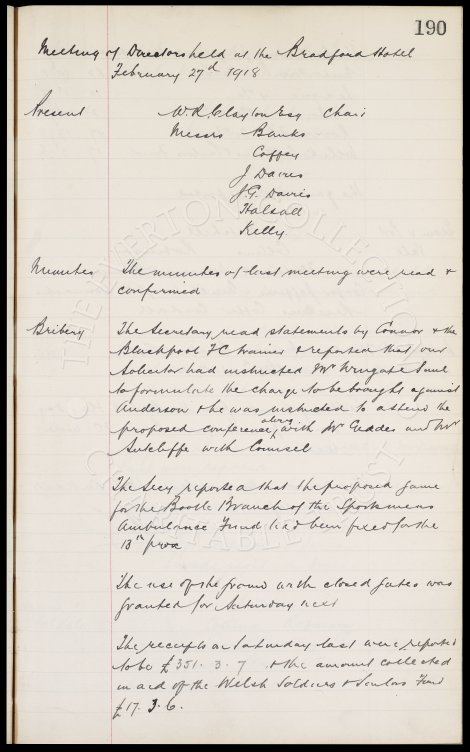 190
Meeting of Directors held at the Bradford Hotel
February 27th 1918
Present W.R. Clayton Esq Chair
Messrs Banks
Coffey
J Davies
J.G. Davies
Halsall
Kelly
Minutes The minutes of last meeting were read &
confirmed
Bribery The Secretary read statements by Connor & the
Blackpool FC trainer & reported that our
Solicitor had instructed Mr Wingate Saul
to formulate the charge to be brought against
Anderson & he was instructed to attend the
proposed conference, along with Mr Geddes and Mr
Sutcliffe with Counsel
The Secy reported that the proposed game
for the Bootle Branch of the Sportsmens
Ambulance Fund had been fixed for the
13th prox
The use of the ground with closed gates was
granted for Saturday next
The receipts on Saturday last were reported
to be £351. 3. 7 & the amount collected
in aid of the Welsh Soldiers & Sailors Fund
£17. 3. 6.
THE EVERTON COLLECTION
CHARITABLE TRUST